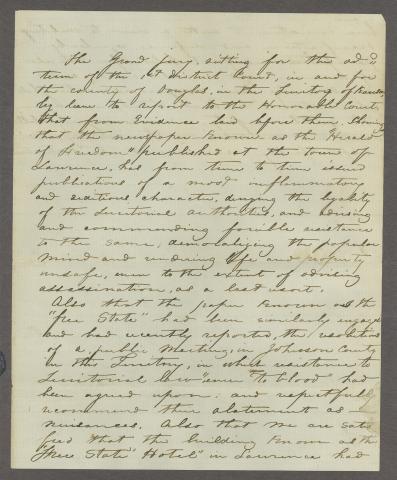 The Grand jury, sitting for the ad
term of the 1st district Court, in and for
the County of Douglas, in the Territory of Kansas
beg leave to report to the Honorable Court
that from Evidence laid before them, showing
that the newspaper Known as the Herald
of Freedom" published at the town of
Lawrence, has from time to time issued
publications of a most inflammatory
and seditious character, denying the legality
of the Territorial authorities, and advising
and commanding forcible resistance
to the same, demoralizing the popular
mind and rendering life and property
unsafe, even to the extent of advising
assassination, as a last resort.
Also that the paper Known as the
"Free State" had been similarly engaged
and had recently reported, the resolutions
of a public Meeting, in Johnson County
in this Territory, in which resistance to
Territorial law "even to blood had
been agreed upon: and respectfully
recommend their abatement as
nuisances. Also that we are satis
fied that the building Known as the
"Free State Hotel" in Lawrence had